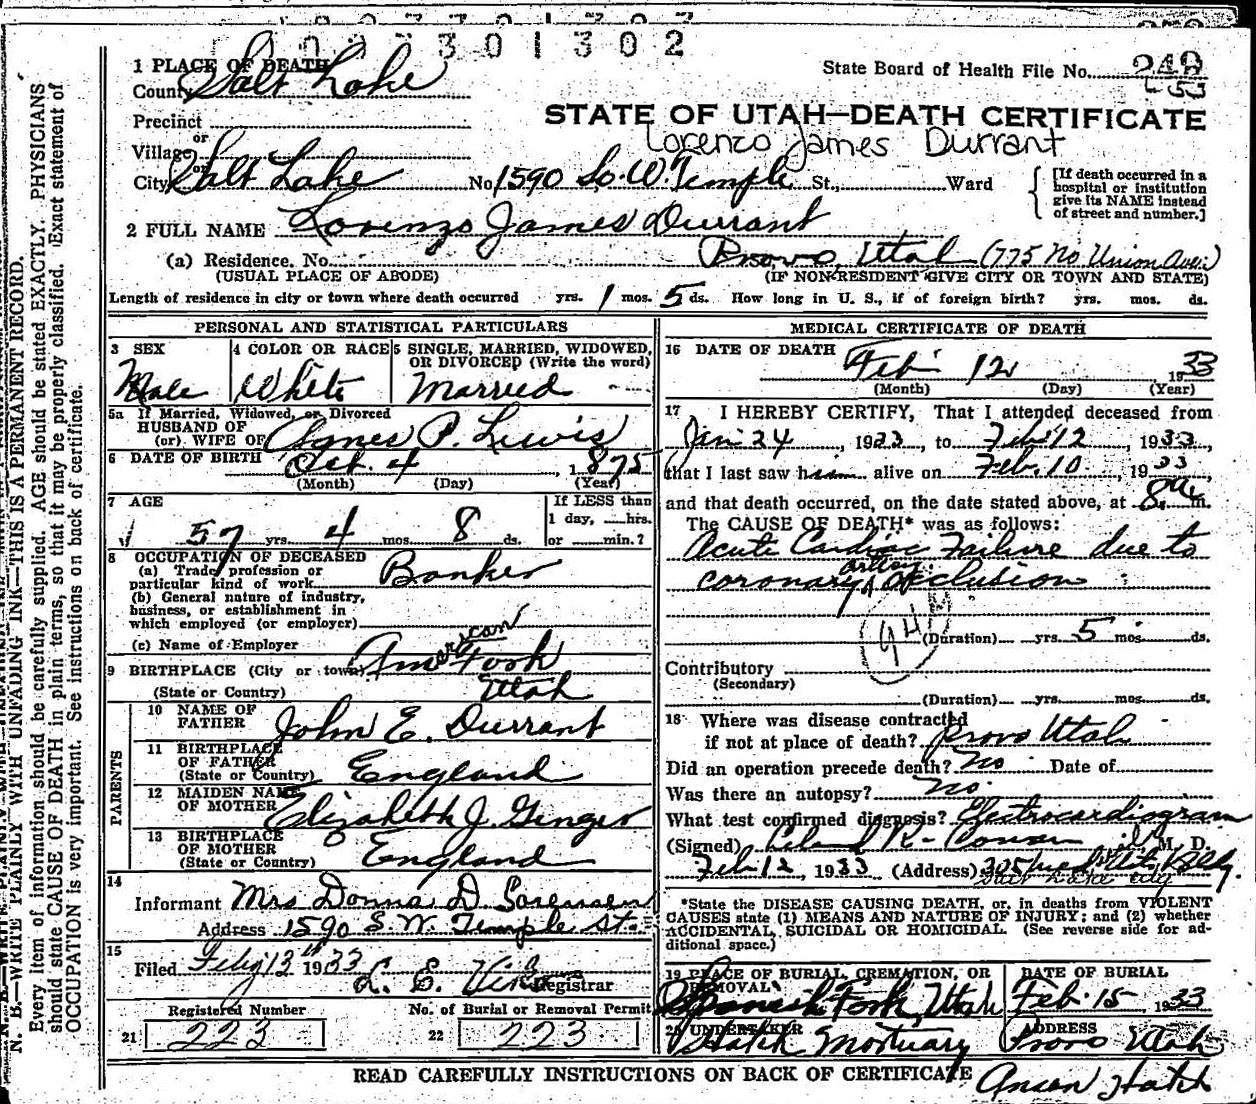 0 9 3 3 0 1 3 0 2
1 PLACE OF DEATH
County Salt Lake
State Board of Health File No. 249
53
STATE OF UTAH—DEATH CERTIFICATE
Lorenzo James Durrant
Precinct
or
Village
or
City Salt Lake No. 1590 So. W. Temple St., Ward
[If death occurred in a hospital or institution give its NAME instead of street and number.]
2 FULL NAME Lorenzo James Durrant
(a) Residence. No. Provo, Utah (775 No Union Ave.)
(USUAL PLACE OF ABODE) (IF NON-RESIDENT GIVE CITY OR TOWN AND STATE)
Length of residence in city or town where death occurred yrs. 1 mos. 5 ds. How long in U. S., if of foreign birth? yrs. mos. ds.
PERSONAL AND STATISTICAL PARTICULARS
3 SEX Male
4 COLOR OR RACE White
5 SINGLE, MARRIED, WIDOWED, OR DIVORCED (Write the word) Married
5a If Married, Widowed, or Divorced
HUSBAND OF
(or) WIFE OF Agnes P. Lewis
6 DATE OF BIRTH Oct. 4, 1875
(Month) (Day) (Year)
7 AGE 57 yrs. 4 mos. 8 ds.
If LESS than 1 day, hrs. or min.?
8 OCCUPATION OF DECEASED
(a) Trade, profession or particular kind of work Banker
(b) General nature of industry, business, or establishment in which employed (or employer)
(c) Name of Employer
9 BIRTHPLACE (City or town) American Fork
(State or Country) Utah
PARENTS
10 NAME OF FATHER John E. Durrant
11 BIRTHPLACE OF FATHER (State or Country) England
12 MAIDEN NAME OF MOTHER Elizabeth J. Ginger
13 BIRTHPLACE OF MOTHER (State or Country) England
14
Informant Mrs Donna D. Sorensen
Address 1590 S. W. Temple St.
15
Filed Feby 13th 1933 L. E. Registrar
Registered Number
21 223
No. of Burial or Removal Permit
22 223
MEDICAL CERTIFICATE OF DEATH
16 DATE OF DEATH Feb 12 1933
(Month) (Day) (Year)
17 I HEREBY CERTIFY, That I attended deceased from
Jan 24, 1923, to Feb 12, 1933,
that I last saw him alive on Feb. 10, 1933
and that death occurred, on the date stated above, at 8 m.
The CAUSE OF DEATH* was as follows:
Acute Cardiac Failure due to
coronary artery occlusion
94
(Duration) yrs. 5 mos. ds.
Contributory
(Secondary)
(Duration) yrs. mos. ds.
18 Where was disease contracted
if not at place of death? Provo Utah
Did an operation precede death? No Date of
Was there an autopsy? No
What test confirmed diagnosis? Electrocardiogram
(Signed) Leland R. Cowan M. D.
Feb 12, 1933 (Address) 305 Bldg.
Salt Lake City
*State the DISEASE CAUSING DEATH, or, in deaths from VIOLENT CAUSES state (1) MEANS AND NATURE OF INJURY; and (2) whether ACCIDENTAL, SUICIDAL OR HOMICIDAL. (See reverse side for additional space.)
19 PLACE OF BURIAL, CREMATION, OR REMOVAL Spanish Fork, Utah
DATE OF BURIAL Feb. 15 1933
20 UNDERTAKER Hatch Mortuary
ADDRESS Provo Utah
READ CAREFULLY INSTRUCTIONS ON BACK OF CERTIFICATE Anson Hatch
N. B.—WRITE PLAINLY WITH UNFADING INK—THIS IS A PERMANENT RECORD.
Every item of information should be carefully supplied. AGE should be stated EXACTLY. PHYSICIANS
should state CAUSE OF DEATH in plain terms, so that it may be properly classified. Exact statement of
OCCUPATION is very important. See instructions on back of certificate.